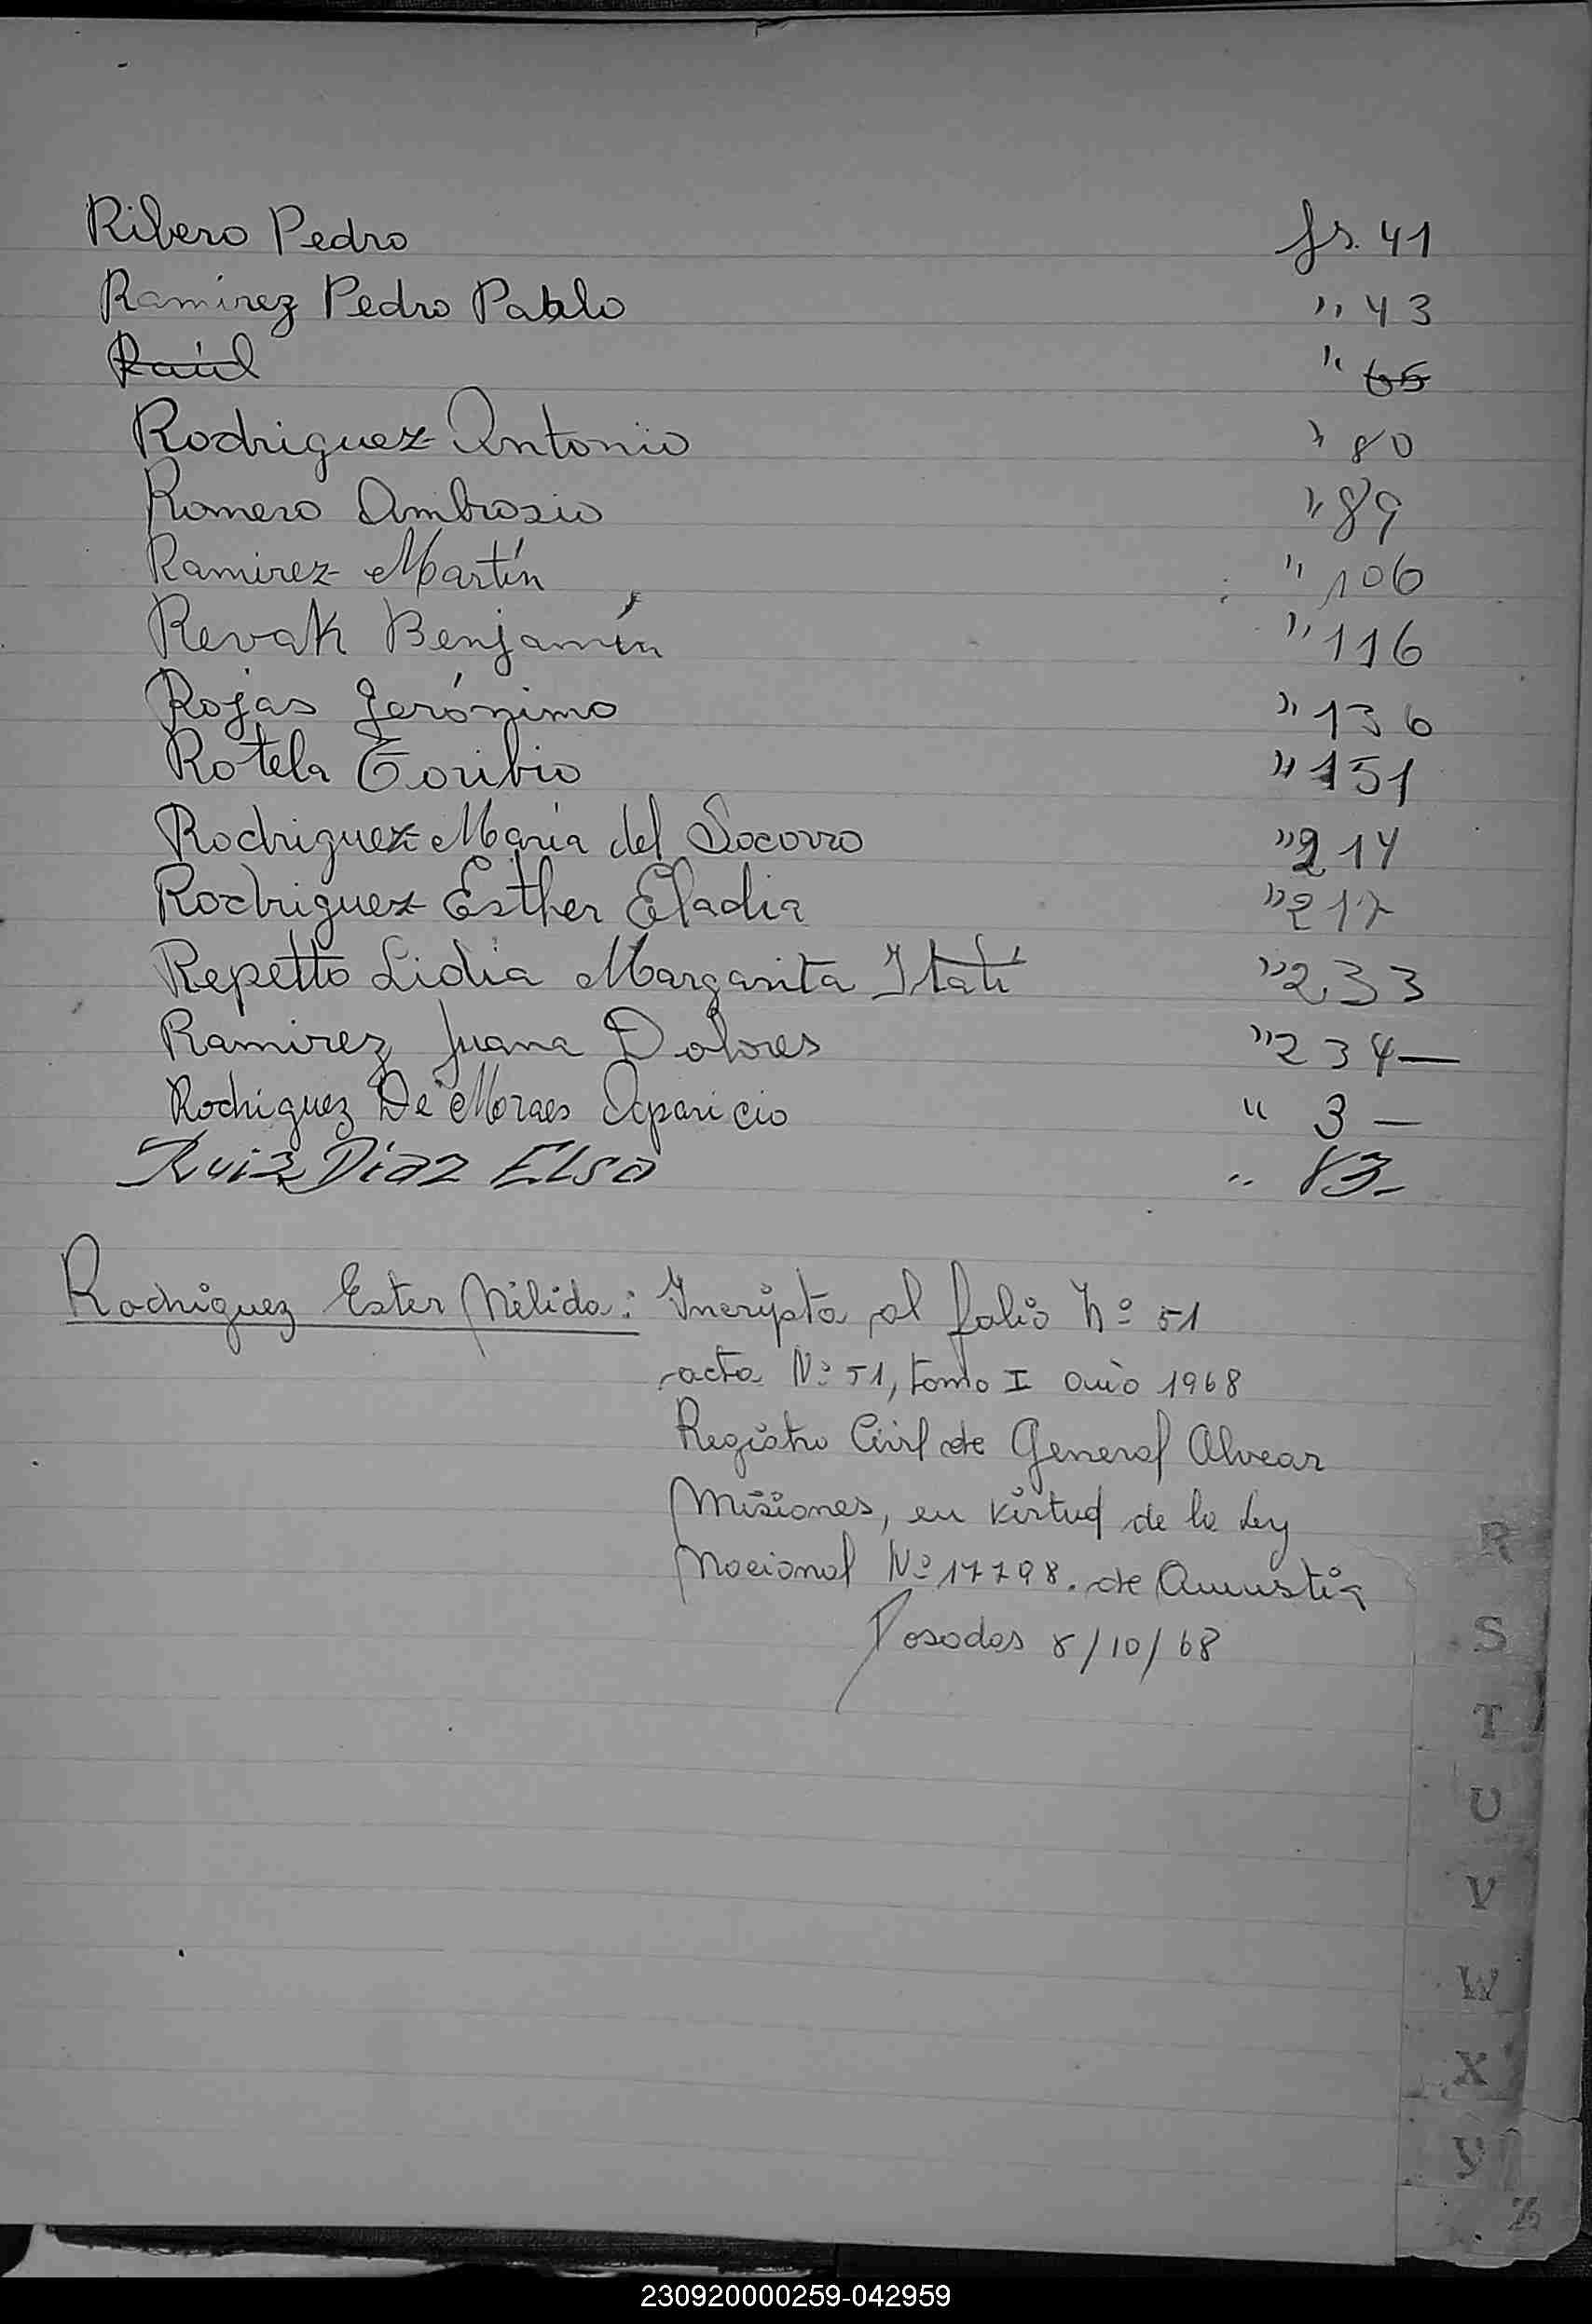 Ribero Pedro fs. 41
Ramírez Pedro Pablo " 43
Raúl " 65
Rodriguez Antonio " 80
Romero Ambrosio " 89
Ramirez Martín " 106
Revak Benjamín " 116
Rojas Jerónimo " 136
Rotela Toribio " 151
Rodriguez María del Socorro " 214
Rodriguez Esther Eladia " 217
Repetto Lidia Margarita Itatí " 233
Ramirez Juana Dolores " 234—
Rodriguez De Moraes Aparicio " 3 —
Ruiz Diaz Elsa " 83-
Rodriguez Ester Nélida: Incripta al folio Nº 51
acta Nº 51, tomo I año 1968
Registro Civil de General Alvear
Misiones, en virtud de la Ley
Nacional Nº 17798. de Amnistia
Posadas 8/10/68
R
S
T
U
V
W
X
Y
Z
230920000259-042959